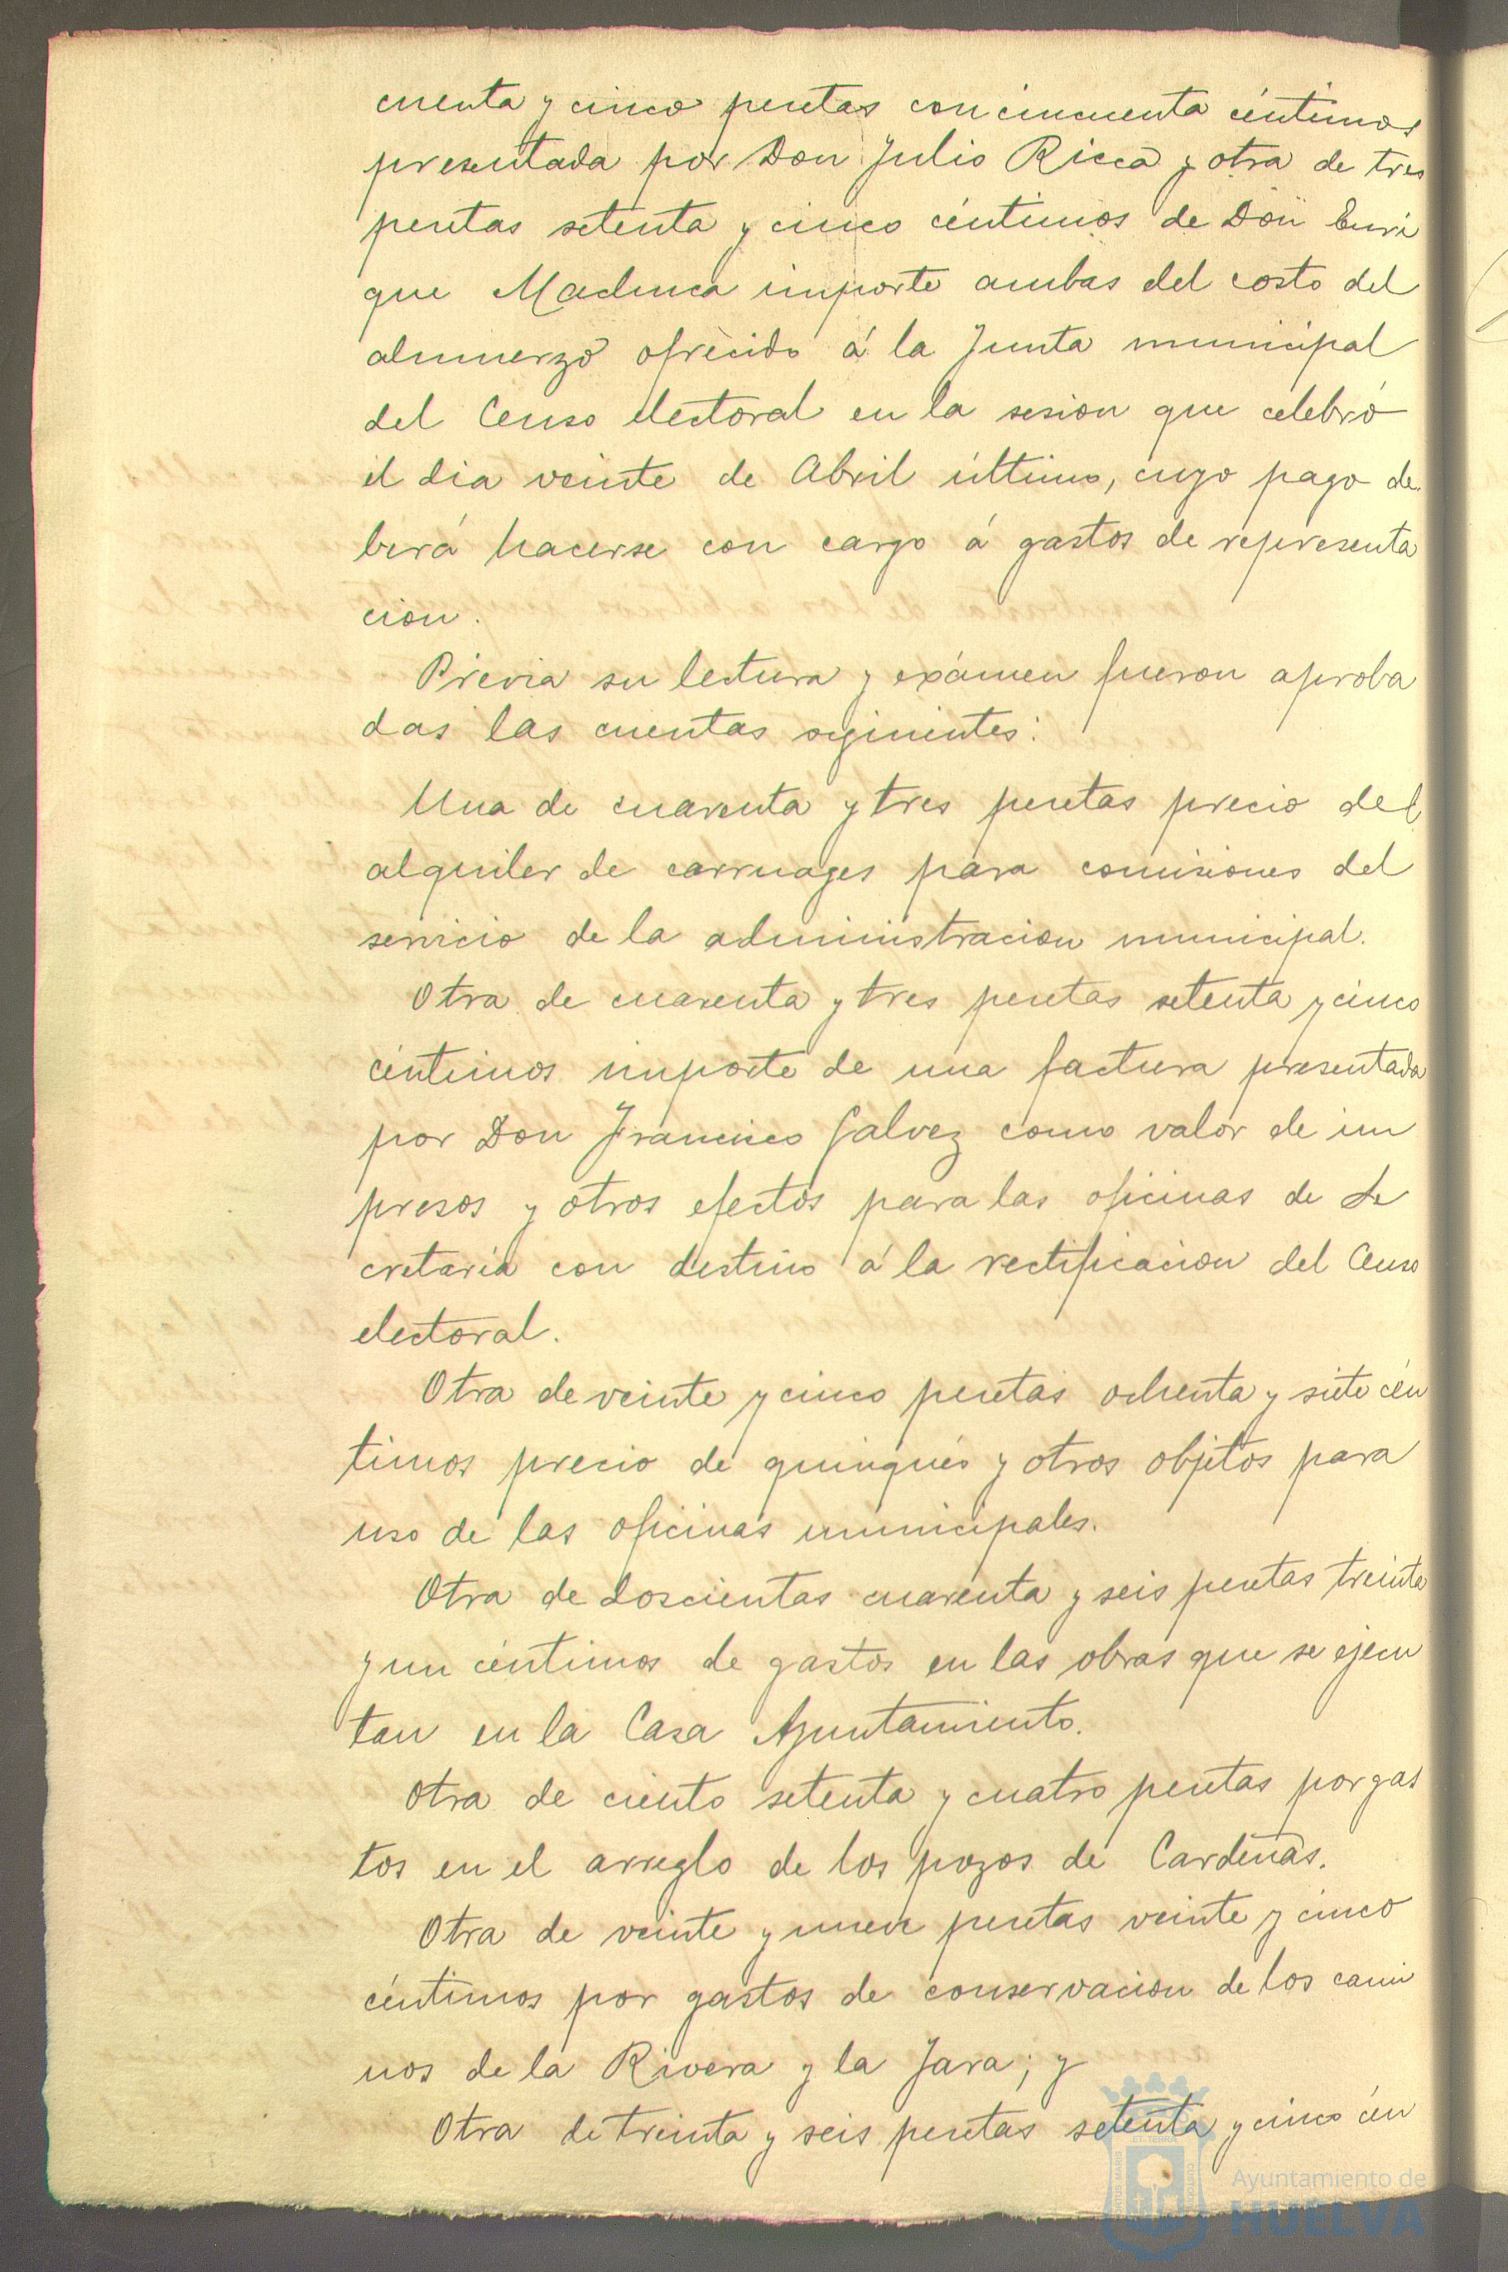 cuenta y cinco pesetas con cincuenta céntimos
presentada por Don Julio Ricca y otra de tres
pesetas setenta y cinco céntimos de Don Enri
que Macluca importe ambas del costo del
almuerzo ofrecido á la Junta municipal
del Censo electoral en la sesion que celebró
el dia veinte de Abril último, cuyo pago de
berá hacerse con cargo á gastos de representa
cion.
Prévia su lectura y exámen fueron aproba
das las cuentas siguientes:
Una de cuarenta y tres pesetas precio del
alquiler de carruages para comisiones del
servicio de la administracion municipal.
Otra de cuarenta y tres pesetas setenta y cinco
céntimos importe de una factura presentada
por Don Francisco Galvez como valor de im
presos y otros efectos para las oficinas de Se
cretaría con destino á la rectificacion del Censo
electoral.
Otra de veinte y cinco pesetas ochenta y siete cén
timos precio de quinqués y otros objetos para
uso de las oficinas municipales.
Otra de doscientas cuarenta y seis pesetas treinta
y un céntimos de gastos en las obras que se ejecu
tan en la Casa Ayuntamiento.
Otra de ciento setenta y cuatro pesetas por gas
tos en el arreglo de los pozos de Cardeñas.
Otra de veinte y nueve pesetas veinte y cinco
céntimos por gastos de conservacion de los cami
nos de la Rivera y la Jara; y
Otra de treinta y seis pesetas setenta y cinco cén
Ayuntamiento de
HUELVA